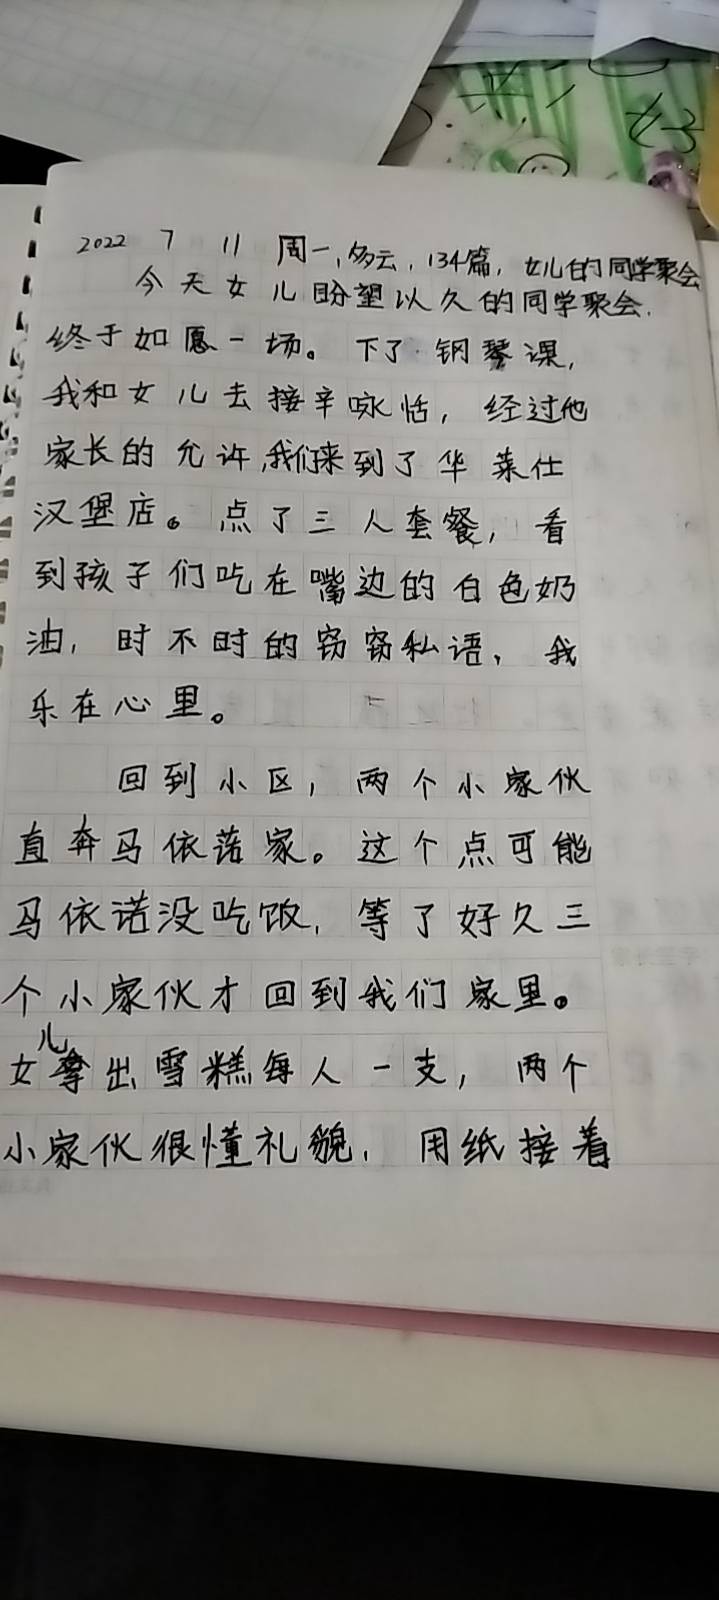 2022 7 11 周一,多云,134篇,女儿的同学聚会
今天女儿盼望以久的同学聚会.
终于如愿一场。下了钢琴课,
我和女儿去接辛咏恬,经过他
家长的允许,我们来到了华莱仕
汉堡店。点了三人套餐,看
到孩子们吃在嘴边的白色奶
油,时不时的窃窃私语,我
乐在心里。
回到小区,两个小家伙
直奔马依诺家。这个点可能
马依诺没吃饭,等了好久三
个小家伙才回到我们家里。
女儿拿出雪糕每人一支,两个
小家伙很懂礼貌,用纸接着